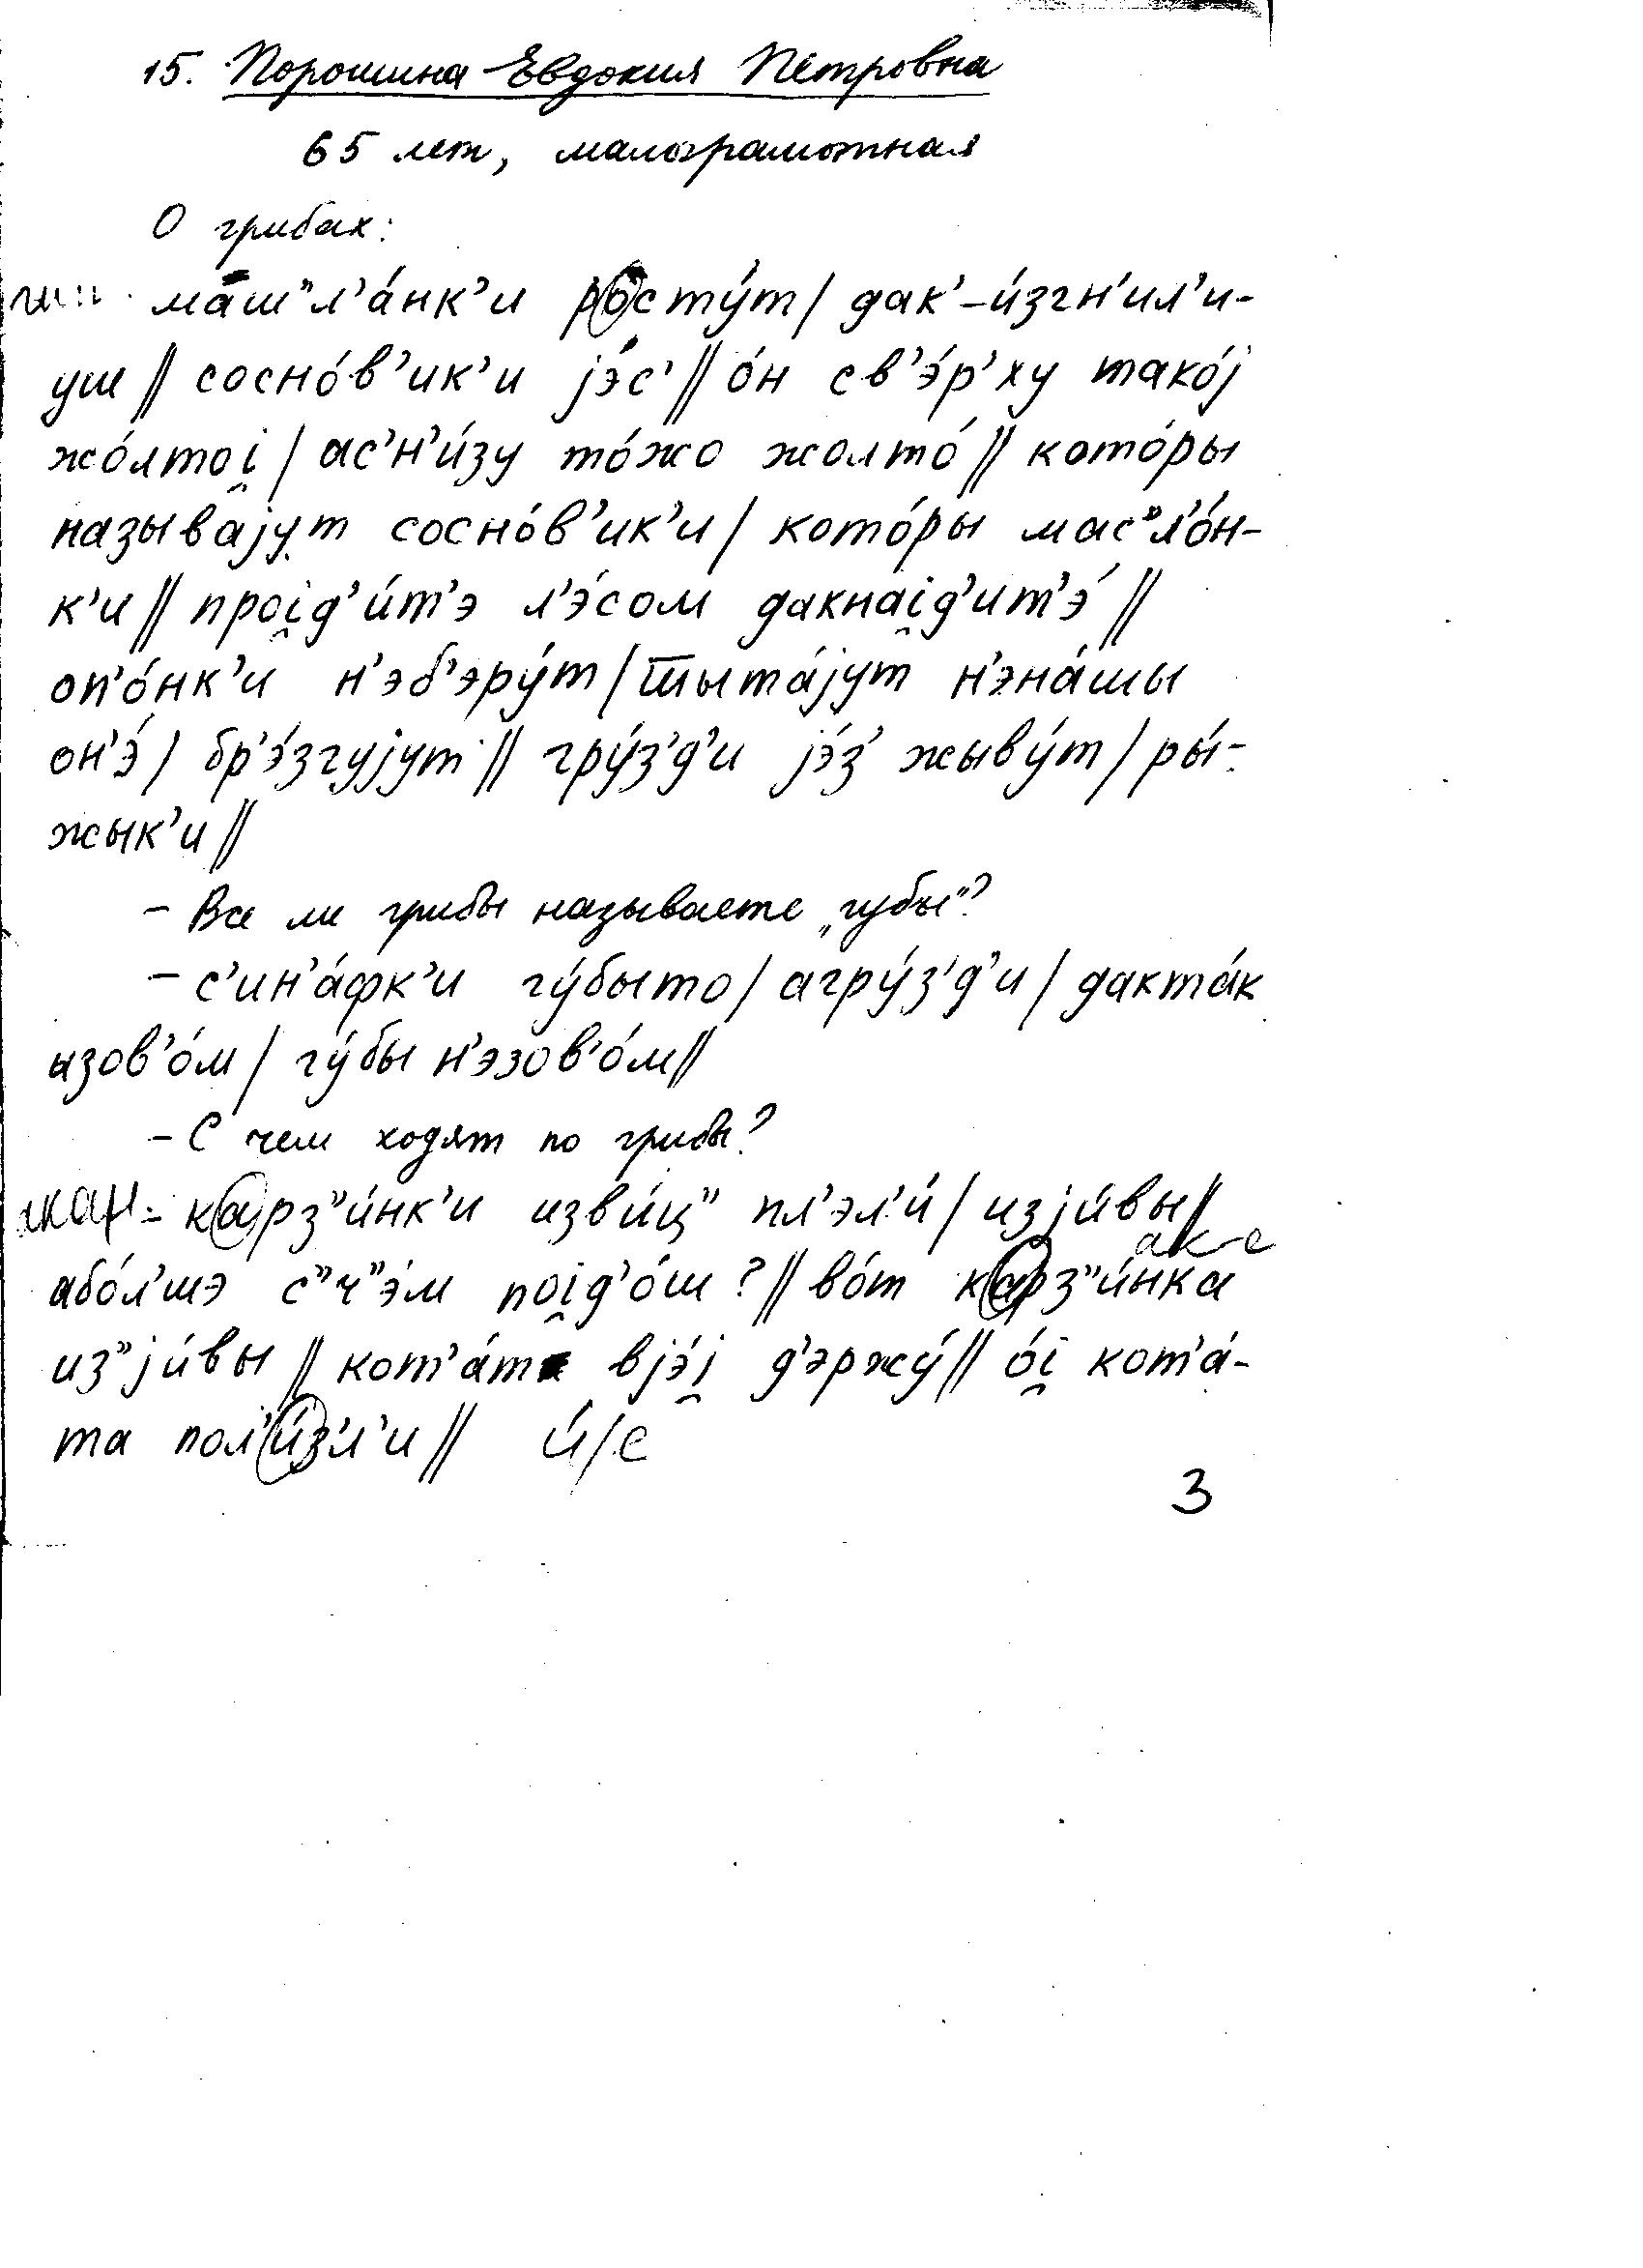 15. Порошина Евдокия Петровна
65 лет, малограмотная
О грибах:
маш"л'а́нк'и росту́т / дак'-и́згн'ил'и-
уш // сосно́в'ик'и jэ́с' // о́н св'э́р'ху тако́j
жо́лтоi̯ / ас'н'и́зу то́жо жолто́ // кото́ры
называjут сосно́в'ик'и / кото́ры мас"л'о́н-
к'и // проi̯д'и́т'э л'э́сом дакнаi̯д'ит'э́ //
оп'о́нк'и н'эб'эру́т / тшыта́jут н'эна́шы
он'э́ / бр'э́згуjут // гру́з'д'и jэ́з' жыву́т / ры́-
жык'и //
- Все ли грибы называете „губы"?
- с'ин'а́фк'и гу́быто / агру́з'д'и / дакта́к
изов'о́м / гу́бы н'эзов'о́м //
- С чем ходят по грибы?
- карз"и́нк'и изви́ц" пл'эл'и́ / изjи́вы //
або́л'шэ с"ч"э́м поi̯д'о́ш? // во́т карз"и́нка
из"jи́вы // кот'а́т вjэ́i̯ д'эржу́ // о́i̯ кот'а́-
та пол'и́з'л'и // и́/е
3